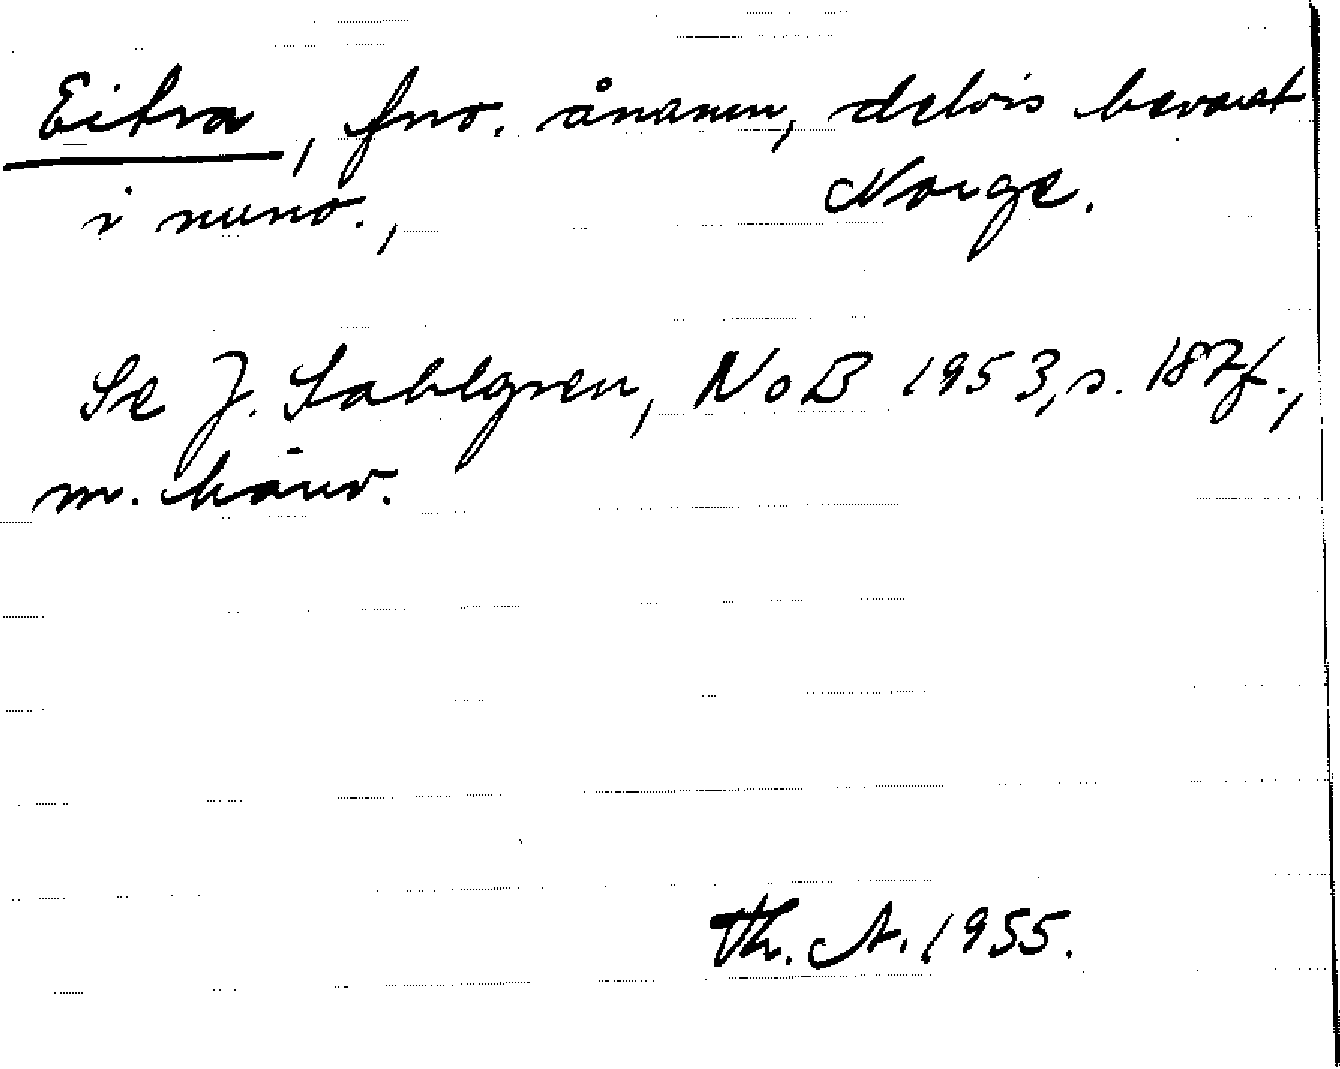 Eitra, fno. ånamn, delvis bevarat
i nuno., Norge.
Se J. Sahlgren, NoB 1953, s. 187f.,
m. hänv.
Th. A. 1955.